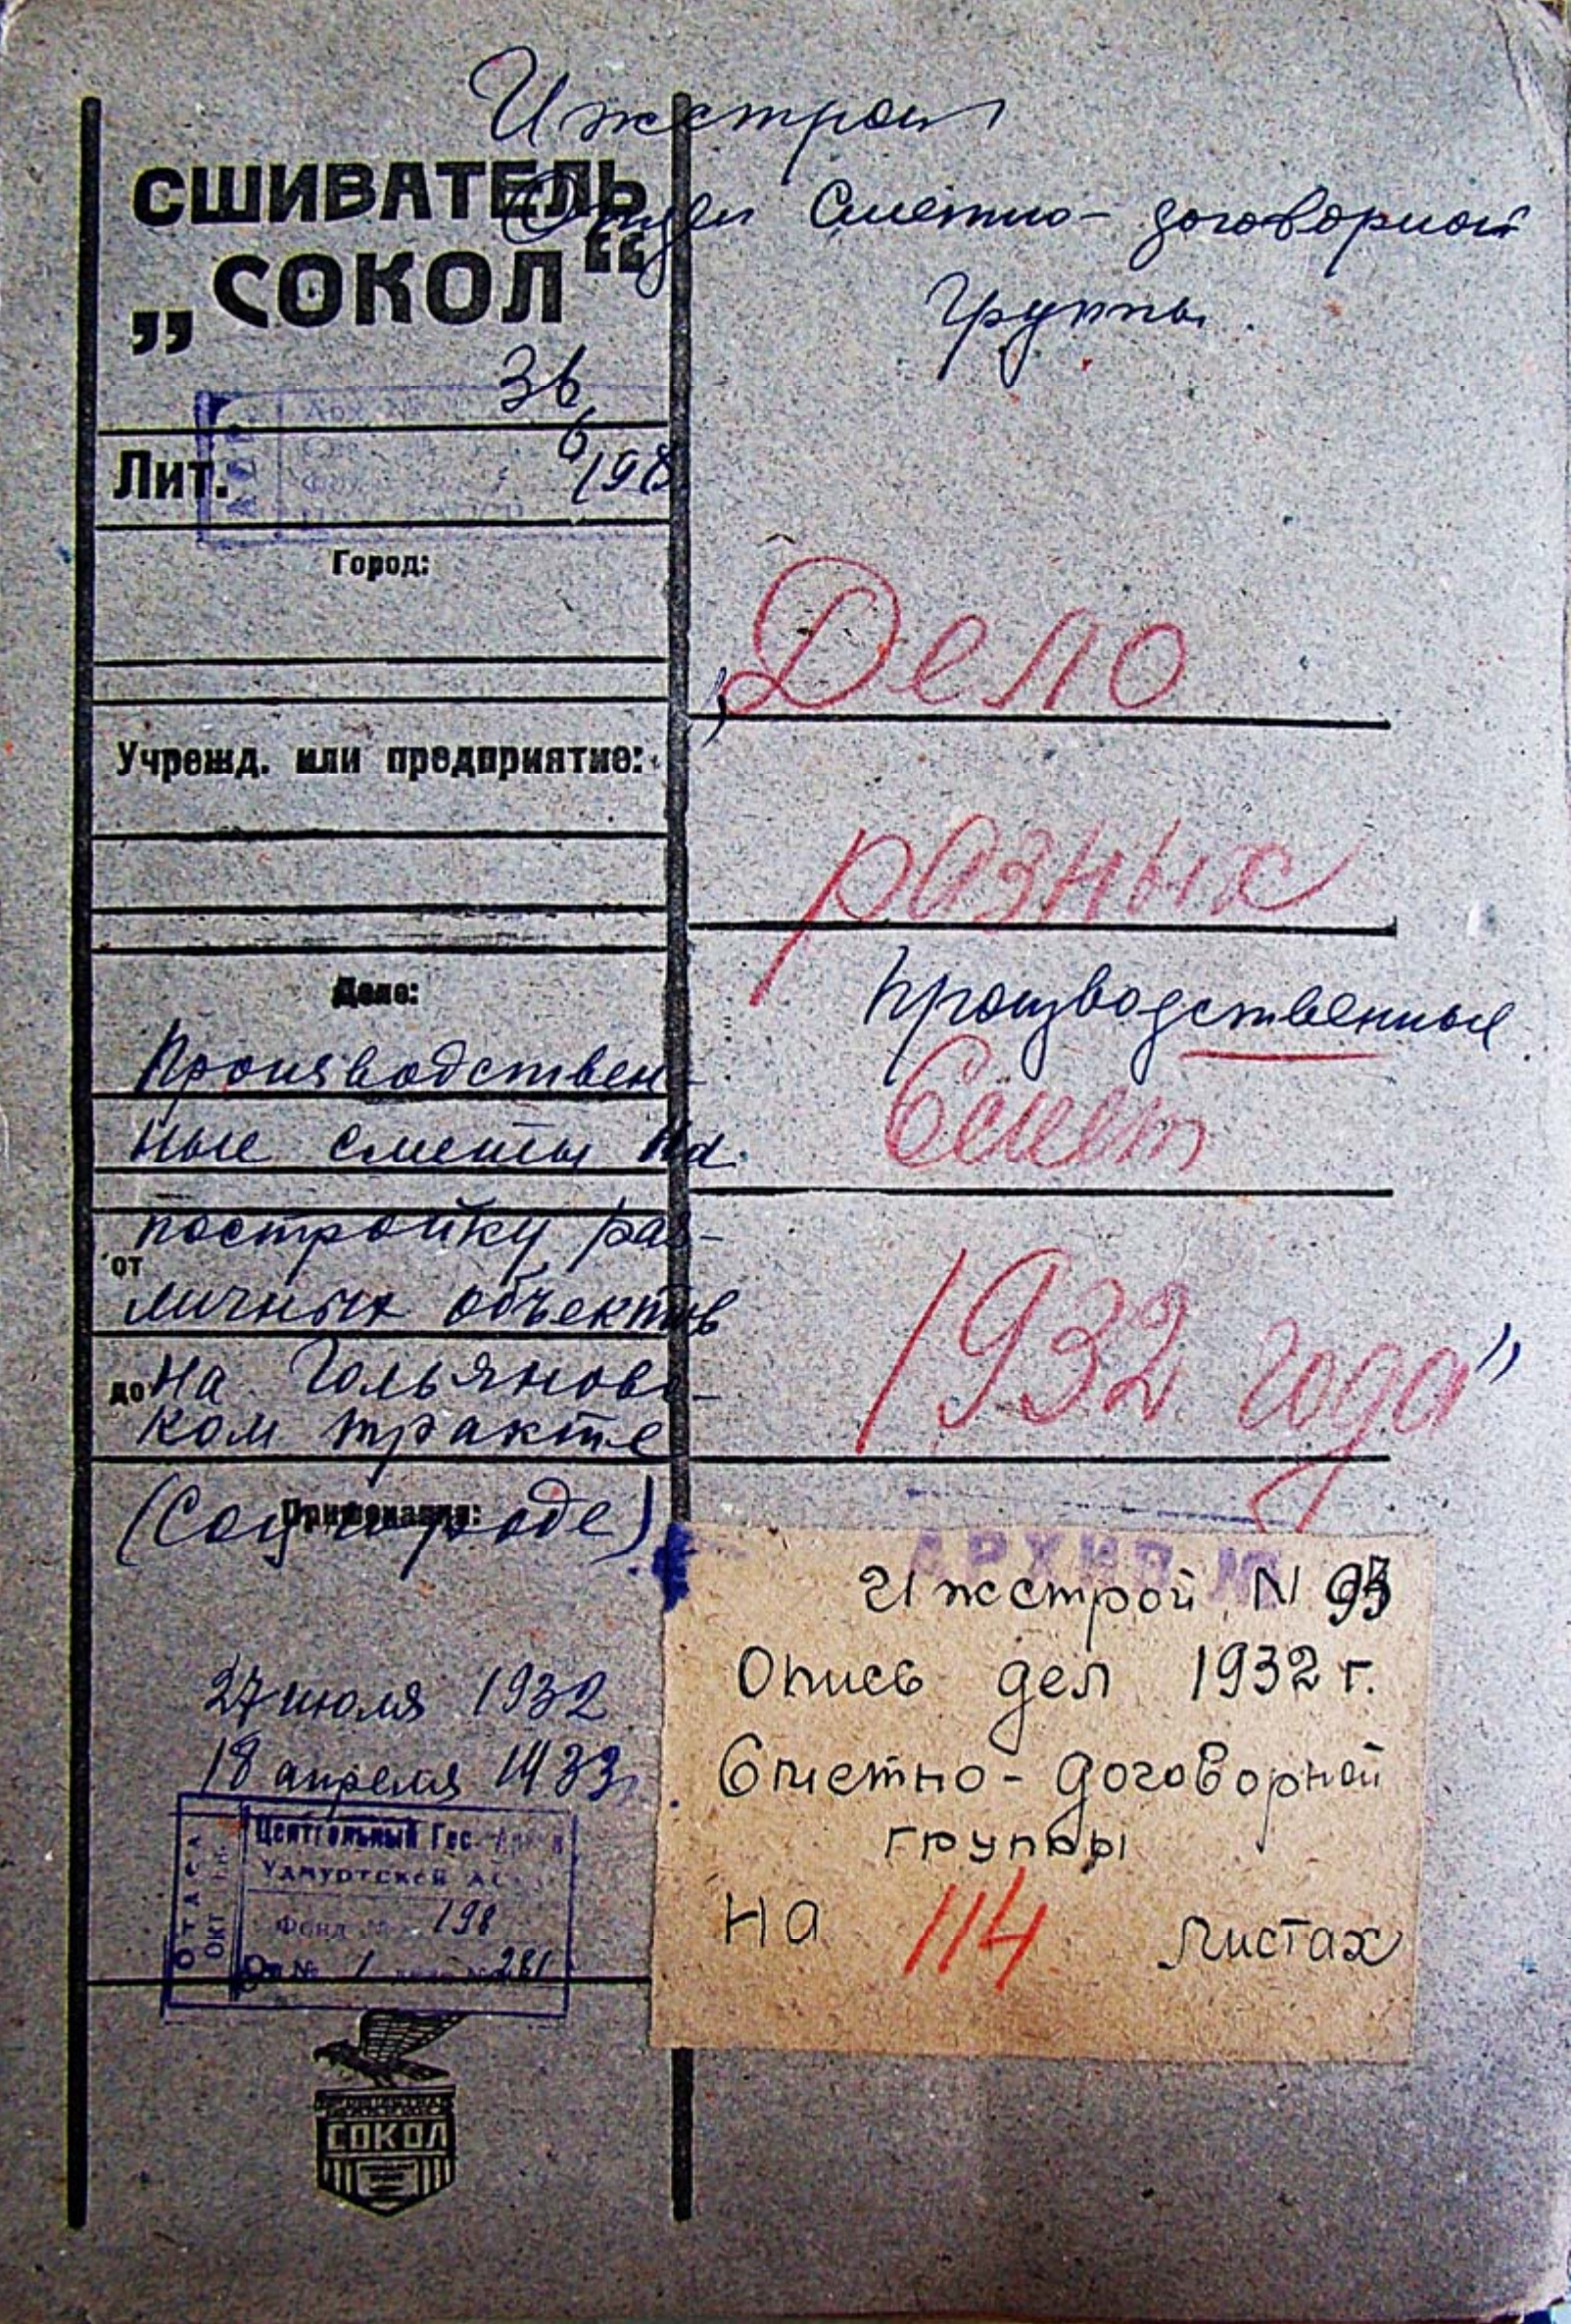 Ижстрой
Отдел Сметно-договорной
группы.
СШИВАТЕЛЬ
„СОКОЛ“
36
6/198
Лит.
Город:
Учрежд. или предприятие:
Дело:
Производствен-
ные сметы на
постройку раз-
от
личных объектов
до на Гольяновс-
ком тракте
Примечания:
(Соцгороде)
27 июля 1932
18 апреля 1933
Центральный Гос.
Удмуртской АС
Фонд № 198
Оп № 1 281
СОКОЛ
„Дело
разных
производственные
Смет
1932 года"
АРХИВ №
Ижстрой N
Опись дел 1932 г.
Сметно-договорной
группы
На 114 листах